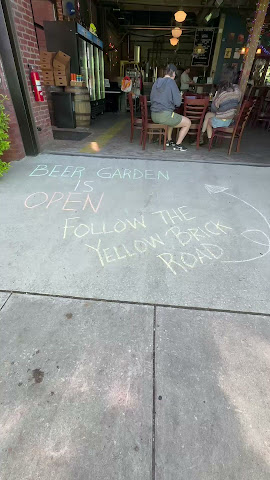 BEER GARDEN
IS
OPEN
FOLLOW THE
YELLOW BRICK
ROAD